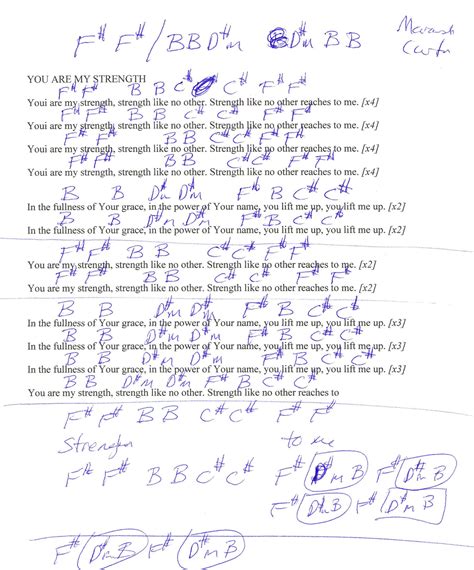 F# F# / B B D#m D#m B B
YOU ARE MY STRENGTH
F# F# B B C# C# F# F#
Youi are my strength, strength like no other. Strength like no other reaches to me. [x4]
F# F# B B C# C# F# F#
Youi are my strength, strength like no other. Strength like no other reaches to me. [x4]
F# F# B B C# C# F# F#
Youi are my strength, strength like no other. Strength like no other reaches to me. [x4]
F# F# B B C# C# F# F#
Youi are my strength, strength like no other. Strength like no other reaches to me. [x4]
B B D#m D#m F# B C# C#
In the fullness of Your grace, in the power of Your name, you lift me up, you lift me up. [x2]
B B D#m D#m F# B C# C#
In the fullness of Your grace, in the power of Your name, you lift me up, you lift me up. [x2]
F# F# B B C# C# F# F#
You are my strength, strength like no other. Strength like no other reaches to me. [x2]
F# F# B B C# C# F# F#
You are my strength, strength like no other. Strength like no other reaches to me. [x2]
B B D#m D#m F# B C# C#
In the fullness of Your grace, in the power of Your name, you lift me up, you lift me up. [x3]
B B D#m D#m F# B C# C#
In the fullness of Your grace, in the power of Your name, you lift me up, you lift me up. [x3]
B B D#m D#m F# B C# C#
In the fullness of Your grace, in the power of Your name, you lift me up, you lift me up. [x3]
B B D#m D#m F# B C# C#
You are my strength, strength like no other. Strength like no other reaches to
F# F# B B C# C# F# F#
Strength to me
F# F# B B C# C# F# D#m B F# D#m B
F# D#m B F# D#m B
F# D#m B F# D#m B